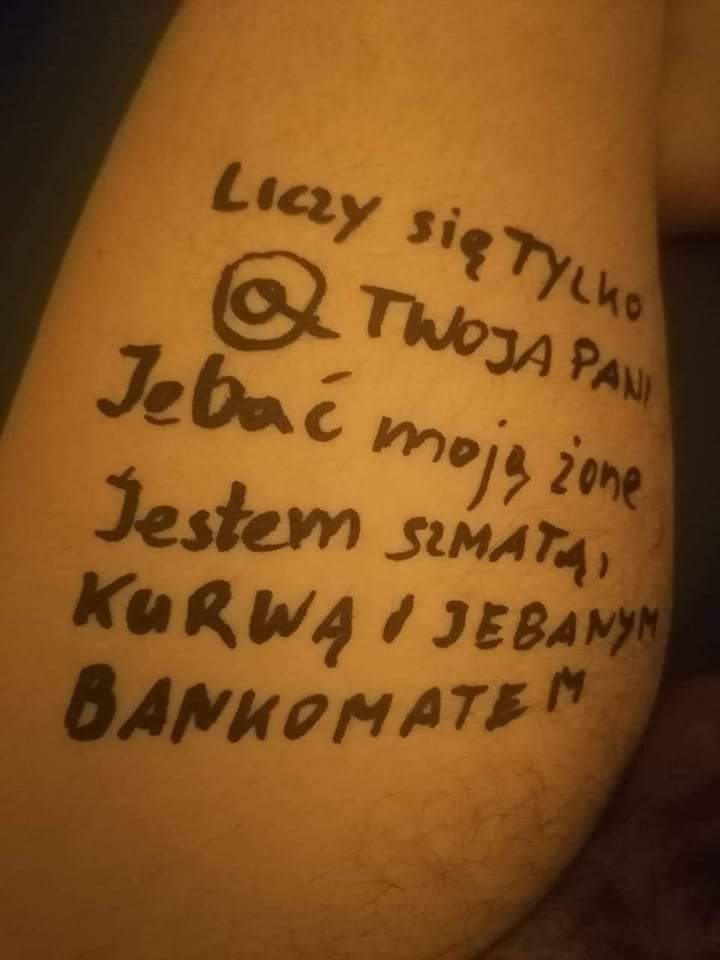 Liczy się TYLKO
@ TWOJA PANI
Jebać moją żonę
Jestem SZMATĄ,
KURWĄ I JEBANYM
BANKOMATEM